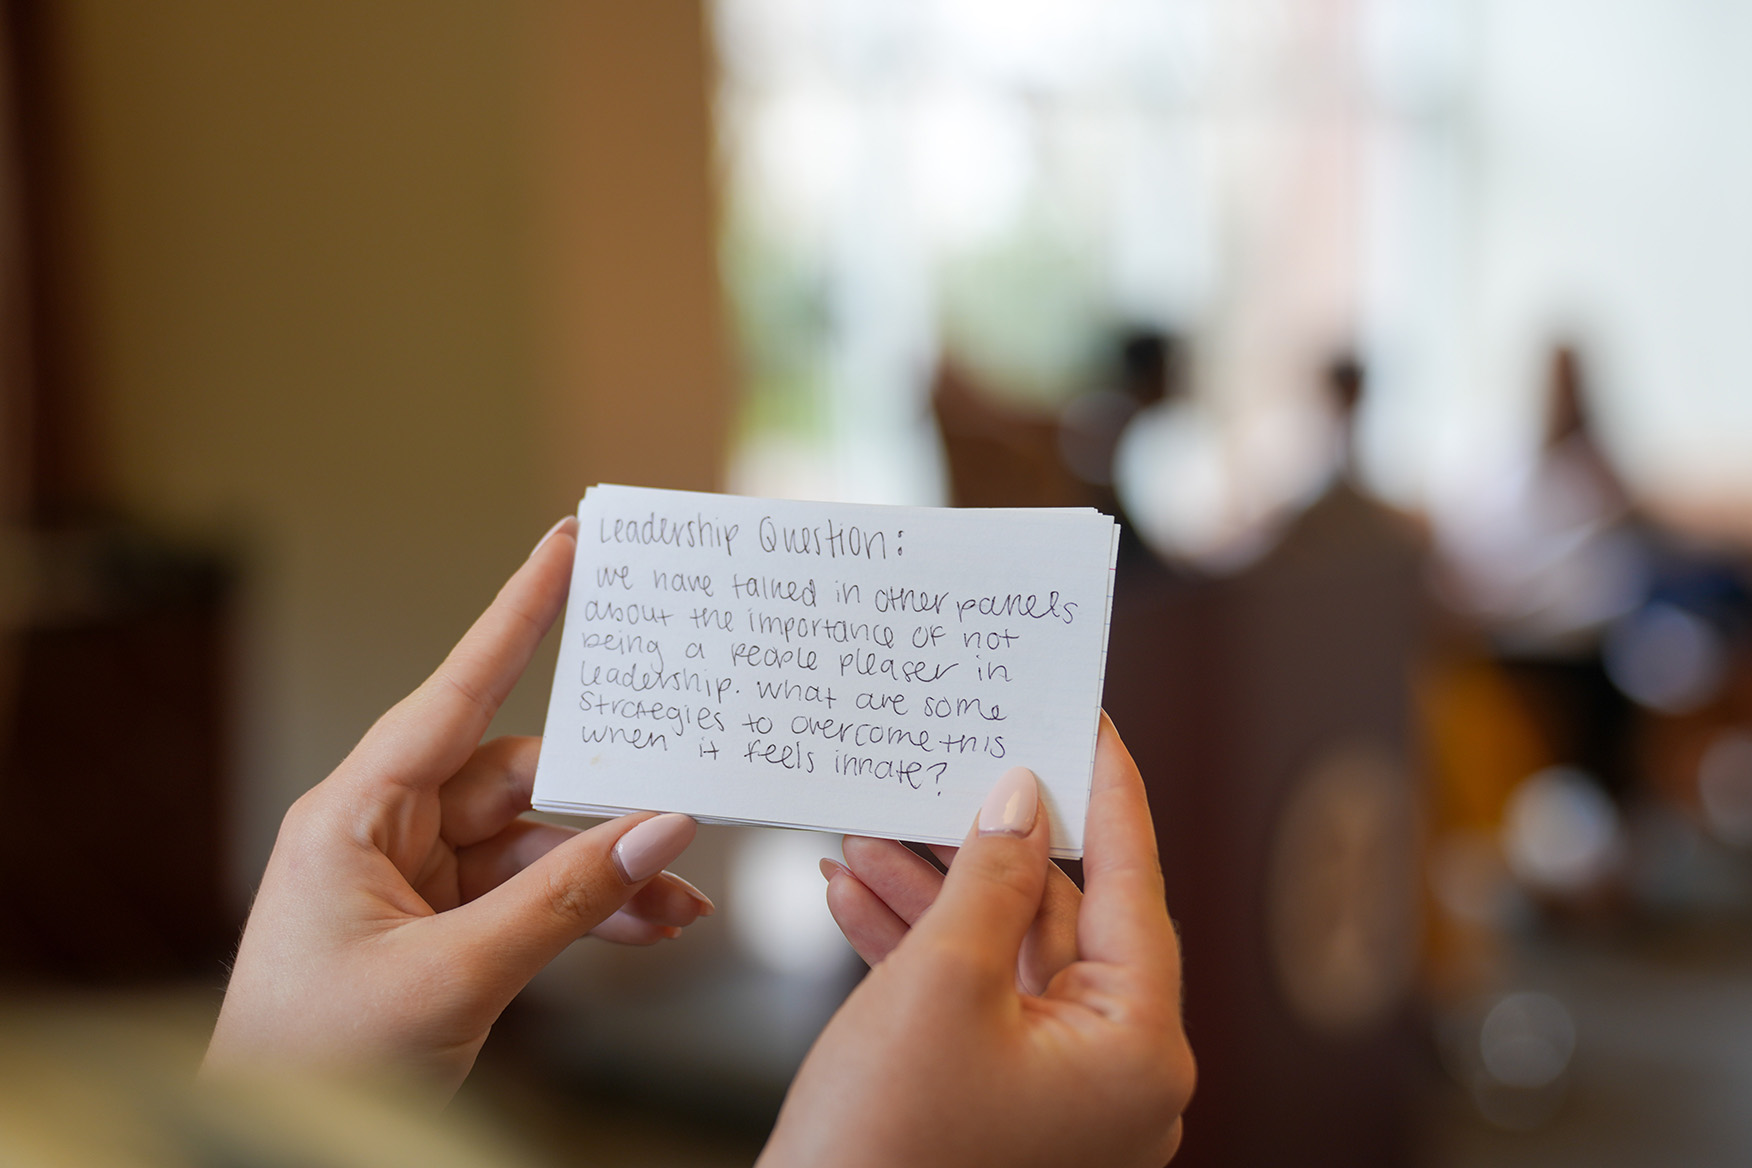 Leadership Question:
we have talked in other panels
about the importance of not
being a people pleaser in
leadership. What are some
strategies to overcome this
when it feels innate?